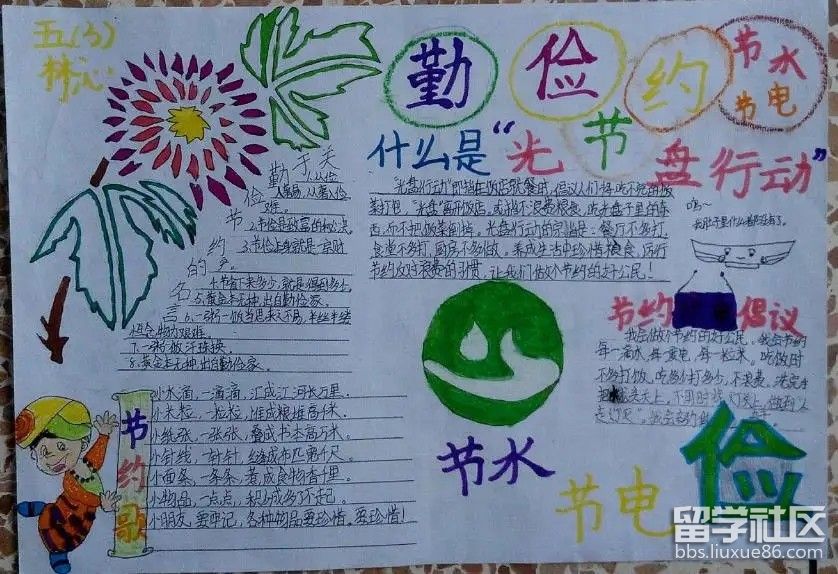 五(3)
勤
俭
节
约
节水
节电
什么是“光盘行动”
关于勤俭节约的名言
2.节俭是致富的秘诀。
4.节省下来多少,就是得到多少
5.黄金本无种,出自勤俭家。
6.一粥一饭当思来之不易,半丝半缕
恒念物力艰难。
8.黄金本无种,出自勤俭家。
“光盘行动”即指在饭店就餐时,倡议人们将吃不完的饭
菜打包,“光盘”离开饭店,或指不浪费粮食,吃光盘子里的东
西,而不把饭菜倒掉。光盘行动的宗旨是:餐厅不多打,
食堂不多打,厨房不多做。养成生活中珍惜粮食,厉行
节约反对浪费的习惯,让我们做个节约的好公民!
节约
倡议
我会做个节约的好公民。我会节约
每一滴水,每一度电,每一粒米。吃饭时
不多打饭,吃多少打多少,不浪费。洗完手
节约歌
小水滴,一滴滴,汇成江河长万里。
小米粒,一粒粒,堆成粮堆高千米。
小纸张,一张张,叠成书本高万米。
小针线,一针针,织成布匹易千尺。
小面条,一条条,煮成食物香十里。
小物品,一点点,积小成多了不起。
小朋友,要牢记,各种物品要珍惜,要珍惜!
节水
节电
俭
留学社区
bbs.liuxue86.com